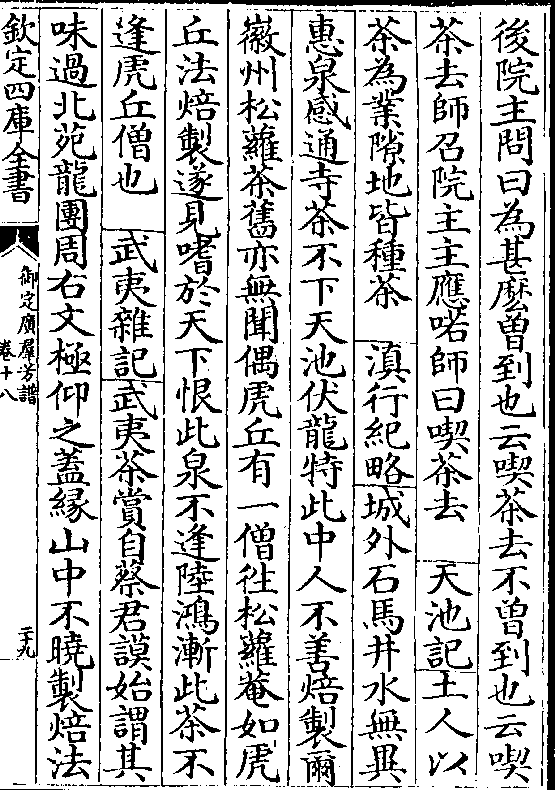 後院主問曰為甚麽曾到也云喫茶去不曾到也云喫
茶去師召院主主應喏師曰喫茶去 天池記土人以
茶為業隙地皆種茶 滇行紀略城外石馬井水無異
惠泉感通寺茶不下天池伏龍特此中人不善焙製爾
徽州松蘿茶舊亦無聞偶虎丘有一僧往松蘿菴如虎
丘法焙製遂見嗜於天下恨此泉不逢陸鴻漸此茶不
逢虎丘僧也 武夷雜記武夷茶賞自蔡君謨始謂其
味過北苑龍團周右文極仰之蓋緣山中不曉製焙法
欽定四庫全書
御定廣羣芳譜
卷十八
二十九